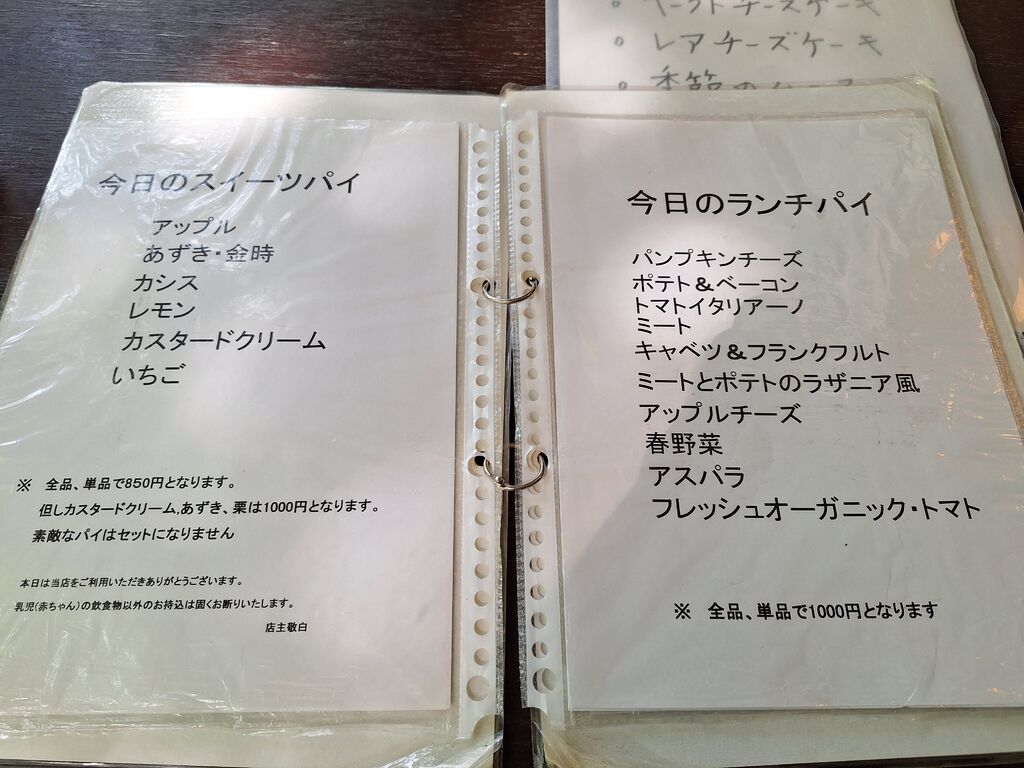 ベークドチーズケーキ
レアチーズケーキ
季節の
今日のスイーツパイ
アップル
あずき・金時
カシス
レモン
カスタードクリーム
いちご
※ 全品、単品で850円となります。
但しカスタードクリーム,あずき、栗は1000円となります。
素敵なパイはセットになりません
本日は当店をご利用いただきありがとうございます。
乳児(赤ちゃん)の飲食物以外のお持込は固くお断りいたします。
店主敬白
今日のランチパイ
パンプキンチーズ
ポテト&ベーコン
トマトイタリアーノ
ミート
キャベツ&フランクフルト
ミートとポテトのラザニア風
アップルチーズ
春野菜
アスパラ
フレッシュオーガニック・トマト
※ 全品、単品で1000円となります